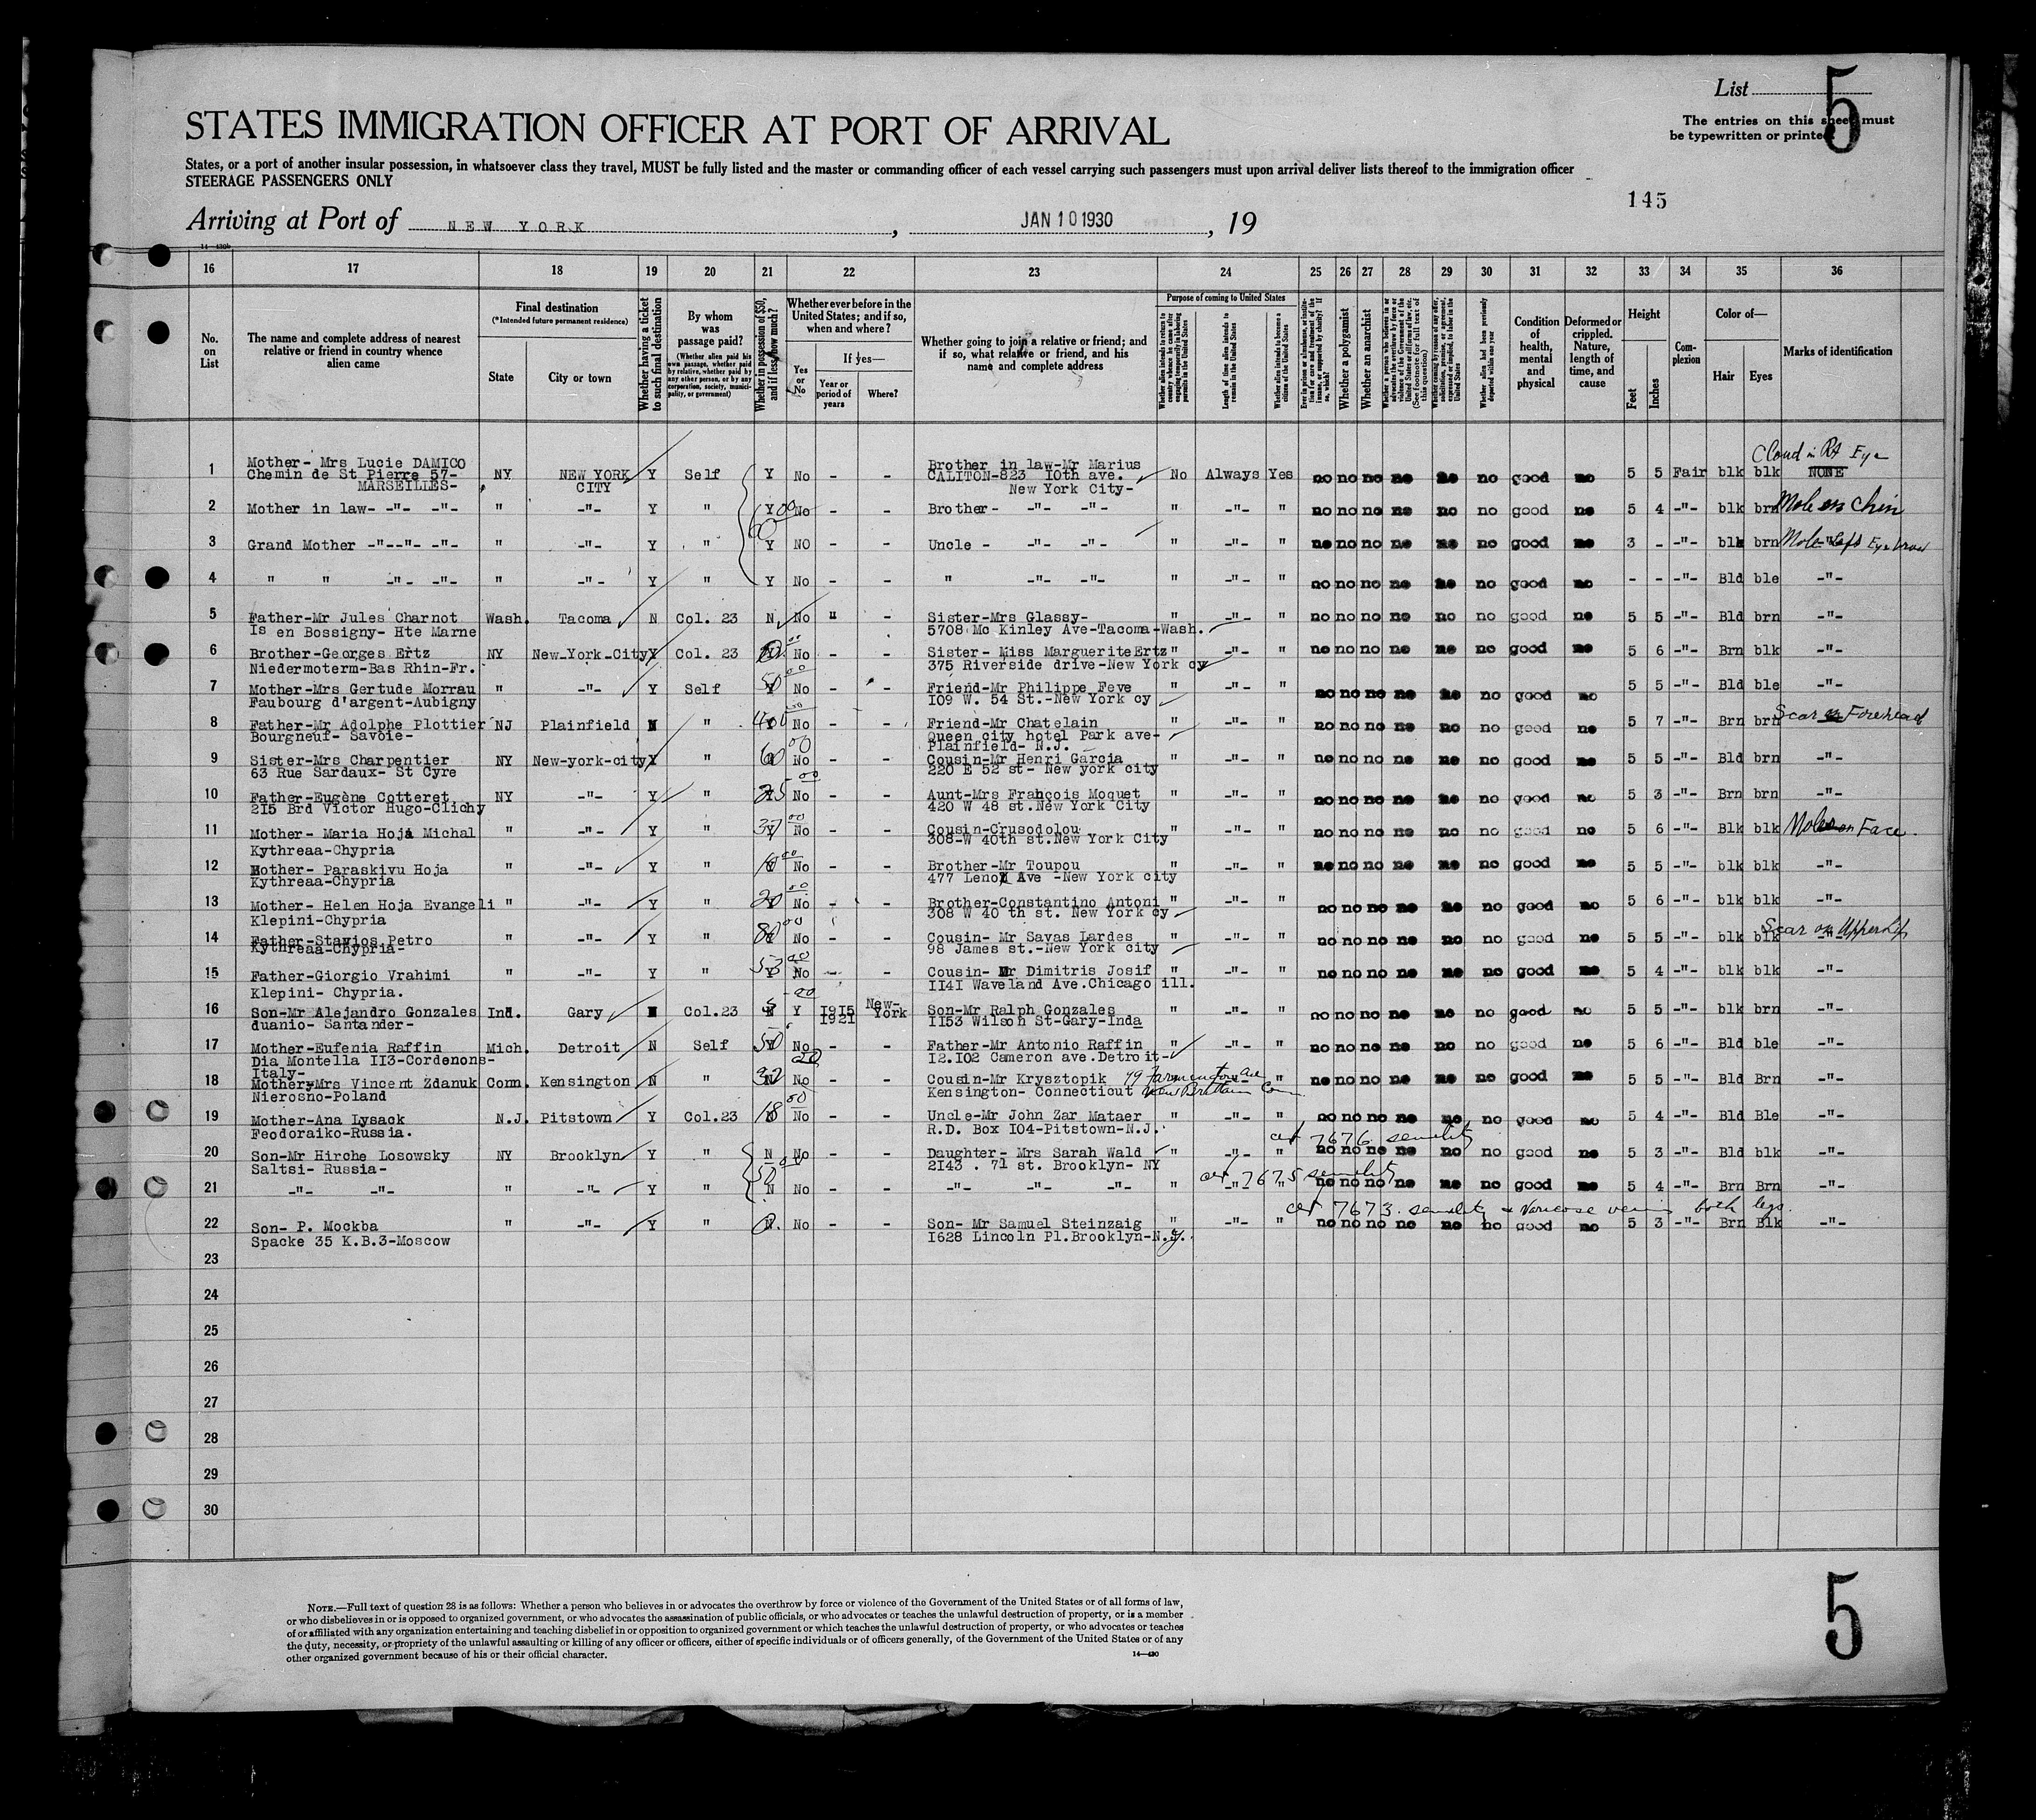 List 5
The entries on this sheet must
be typewritten or printed
STATES IMMIGRATION OFFICER AT PORT OF ARRIVAL
States, or a port of another insular possession, in whatsoever class they travel, MUST be fully listed and the master or commanding officer of each vessel carrying such passengers must upon arrival deliver lists thereof to the immigration officer
STEERAGE PASSENGERS ONLY
145
Arriving at Port of NEW YORK, JAN 10 1930, 19
16 17 18 19 20 21 22 23 24 25 26 27 28 29 30 31 32 33 34 35 36
No. on List
The name and complete address of nearest relative or friend in country whence alien came
Final destination
(*Intended future permanent residence)
State
City or town
Whether having a ticket to such final destination
By whom was passage paid?
(Whether alien paid his own passage, whether paid by relative, whether paid by any other person, or by any corporation, society, municipality, or government)
Whether in possession of $50, and if less, how much?
Whether ever before in the United States; and if so, when and where?
Yes or No
If yes—
Year or period of years
Where?
Whether going to join a relative or friend; and if so, what relative or friend, and his name and complete address
Purpose of coming to United States
Length of time alien intends to remain in the United States
Whether alien intends to become a citizen of the United States
Whether a polygamist
Whether an anarchist
Whether alien had been previously deported within one year
Condition of health, mental and physical
Deformed or crippled. Nature, length of time, and cause
Height
Feet
Inches
Complexion
Color of—
Hair
Eyes
Marks of identification
1 Mother- Mrs Lucie DAMICO NY NEW YORK Y Self Y No - - Brother in law-Mr Marius No Always Yes no no no no no no good no 5 5 Fair blk blk NONE Cloud in Rt Eye
Chemin de St Pierre 57- CITY CALITON-823 10th ave.
MARSEILLES- New York City-
2 Mother in law- -"- -"- " -"- Y " Y No - - Brother- -"- -"- " -"- " no no no no no no good no 5 4 -"- blk brn Mole on Chin
3 Grand Mother -"--"- -"- " -"- Y " Y NO - - Uncle - -"- -"- " -"- " no no no no no no good no 3 - -"- blk brn Mole left Eye brow
4 " " -"- -"- " -"- Y " Y No - - " -"- -"- " -"- " no no no no no no good no - - -"- Bld ble -"-
5 Father-Mr Jules Charnot Wash. Tacoma N Col. 23 N No " - Sister-Mrs Glassy- " -"- " no no no no no no good no 5 5 -"- Bld brn -"-
Is en Bossigny- Hte Marne 5708 Mc Kinley Ave-Tacoma-Wash.
6 Brother-Georges Ertz NY New-York-City Y Col. 23 No - - Sister- Miss Marguerite Ertz " -"- " no no no no no no good no 5 6 -"- Brn blk -"-
Niedermoterm-Bas Rhin-Fr. 375 Riverside drive-New York cy
7 Mother-Mrs Gertude Morrau " -"- Y Self 50 00 No - - Friend-Mr Philippe Feve " -"- " no no no no no no good no 5 5 -"- Bld ble -"-
Faubourg d'argent-Aubigny 109 W. 54 St.-New York cy
8 Father-Mr Adolphe Plottier NJ Plainfield N " No - - Friend-Mr Chatelain " -"- " no no no no no no good no 5 7 -"- Brn brn Scar on Forehead
Bourgneuf- Savoie- Queen city hotel Park ave-
Plainfield- N.J.
9 Sister-Mrs Charpentier NY New-york-city Y " 60 00 No - - Cousin-Mr Henri Garcia " -"- " no no no no no no good no 5 5 -"- Bld brn -"-
63 Rue Sardaux- St Cyre 220 E 52 st- New york city
10 Father-Eugène Cotteret NY -"- Y " 25 00 No - - Aunt-Mrs François Moquet " -"- " no no no no no no good no 5 3 -"- Brn brn -"-
215 Brd Victor Hugo-Clichy 420 W 48 st.New York City
11 Mother- Maria Hoja Michal " -"- Y " 00 No - - Cousin-Crusodolou " -"- " no no no no no no good no 5 6 -"- Blk blk Moles on Face.
Kythreaa-Chypria 308-W 40th st.New York City
12 Mother- Paraskivu Hoja " -"- Y " 00 No - - Brother-Mr Toupou " -"- " no no no no no no good no 5 5 -"- blk blk -"-
Kythreaa-Chypria 477 Lenox Ave -New York city
13 Mother- Helen Hoja Evangeli " -"- Y " 20 00 No - - Brother-Constantino Antoni " -"- " no no no no no no good no 5 6 -"- blk blk -"-
Klepini-Chypria 308 W 40 th st. New York cy
14 Father-Stavios Petro " -"- Y " 80 00 No - - Cousin- Mr Savas Lardes " -"- " no no no no no no good no 5 5 -"- blk blk Scar on Upper Lip
Kythreaa-Chypria- 98 James st.-New York city
15 Father-Giorgio Vrahimi " -"- Y " 53 00 No - - Cousin- Mr Dimitris Josif " -"- " no no no no no no good no 5 4 -"- blk blk -"-
Klepini- Chypria. 1141 Waveland Ave.Chicago ill.
16 Son-Mr Alejandro Gonzales Ind. Gary N Col.23 N Y 1915 1921 New-York Son-Mr Ralph Gonzales " -"- " no no no no no no good no 5 5 -"- blk brn -"-
duanio- Santander- 1153 Wilson St-Gary-Inda
17 Mother-Eufenia Raffin Mich. Detroit N Self 50 No - - Father-Mr Antonio Raffin " -"- " no no no no no no good no 5 6 -"- Bld ble -"-
Dia Montella 113-Cordenons- 12.102 Cameron ave.Detroit-
Italy-
18 Mother-Mrs Vincent Zdanuk Conn. Kensington N " N No - - Cousin-Mr Krysztopik 79 Farmington Ave " no no no no no no good no 5 5 -"- Bld Brn -"-
Nierosno-Poland Kensington- Connecticut New Brittain Conn
19 Mother-Ana Lysack N.J. Pitstown Y Col.23 18 00 No - - Uncle-Mr John Zar Mataer " -"- " no no no no no no good no 5 4 -"- Bld Ble -"-
Feodoraiko-Russia. R.D. Box 104-Pitstown-N.J.
cert 7676 senility
20 Son-Mr Hirche Losowsky NY Brooklyn Y " N No - - Daughter- Mrs Sarah Wald " -"- " no no no no no no good no 5 3 -"- Bld blk -"-
Saltsi- Russia- 2143 . 71 st. Brooklyn- NY
cert 7675 senility
21 -"- -"- " -"- Y " N No - - -"- -"- -"- " -"- " no no no no no no good no 5 4 -"- Brn Brn -"-
cert 7673. senility & Varicose veins both legs.
22 Son- P. Mockba " -"- Y " N. No - - Son- Mr Samuel Steinzaig " -"- " no no no no no no good no 5 3 -"- Brn Blk -"-
Spacke 35 K.B.3-Moscow 1628 Lincoln Pl.Brooklyn-N.Y.
23
24
25
26
27
28
29
30
NOTE.—Full text of question 28 is as follows: Whether a person who believes in or advocates the overthrow by force or violence of the Government of the United States or of all forms of law,
or who disbelieves in or is opposed to organized government, or who advocates the assassination of public officials, or who advocates or teaches the unlawful destruction of property, or is a member
of or affiliated with any organization entertaining and teaching disbelief in or opposition to organized government or which teaches the unlawful destruction of property, or who advocates or teaches
the duty, necessity, or propriety of the unlawful assaulting or killing of any officer or officers, either of specific individuals or of officers generally, of the Government of the United States or of any
other organized government because of his or their official character.
14—430
5